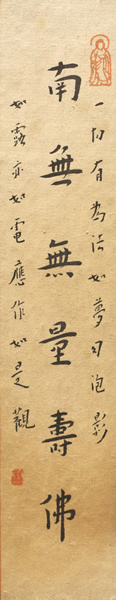 一切有為法如夢幻泡影
南無無量壽佛
如露亦如電應作如是觀